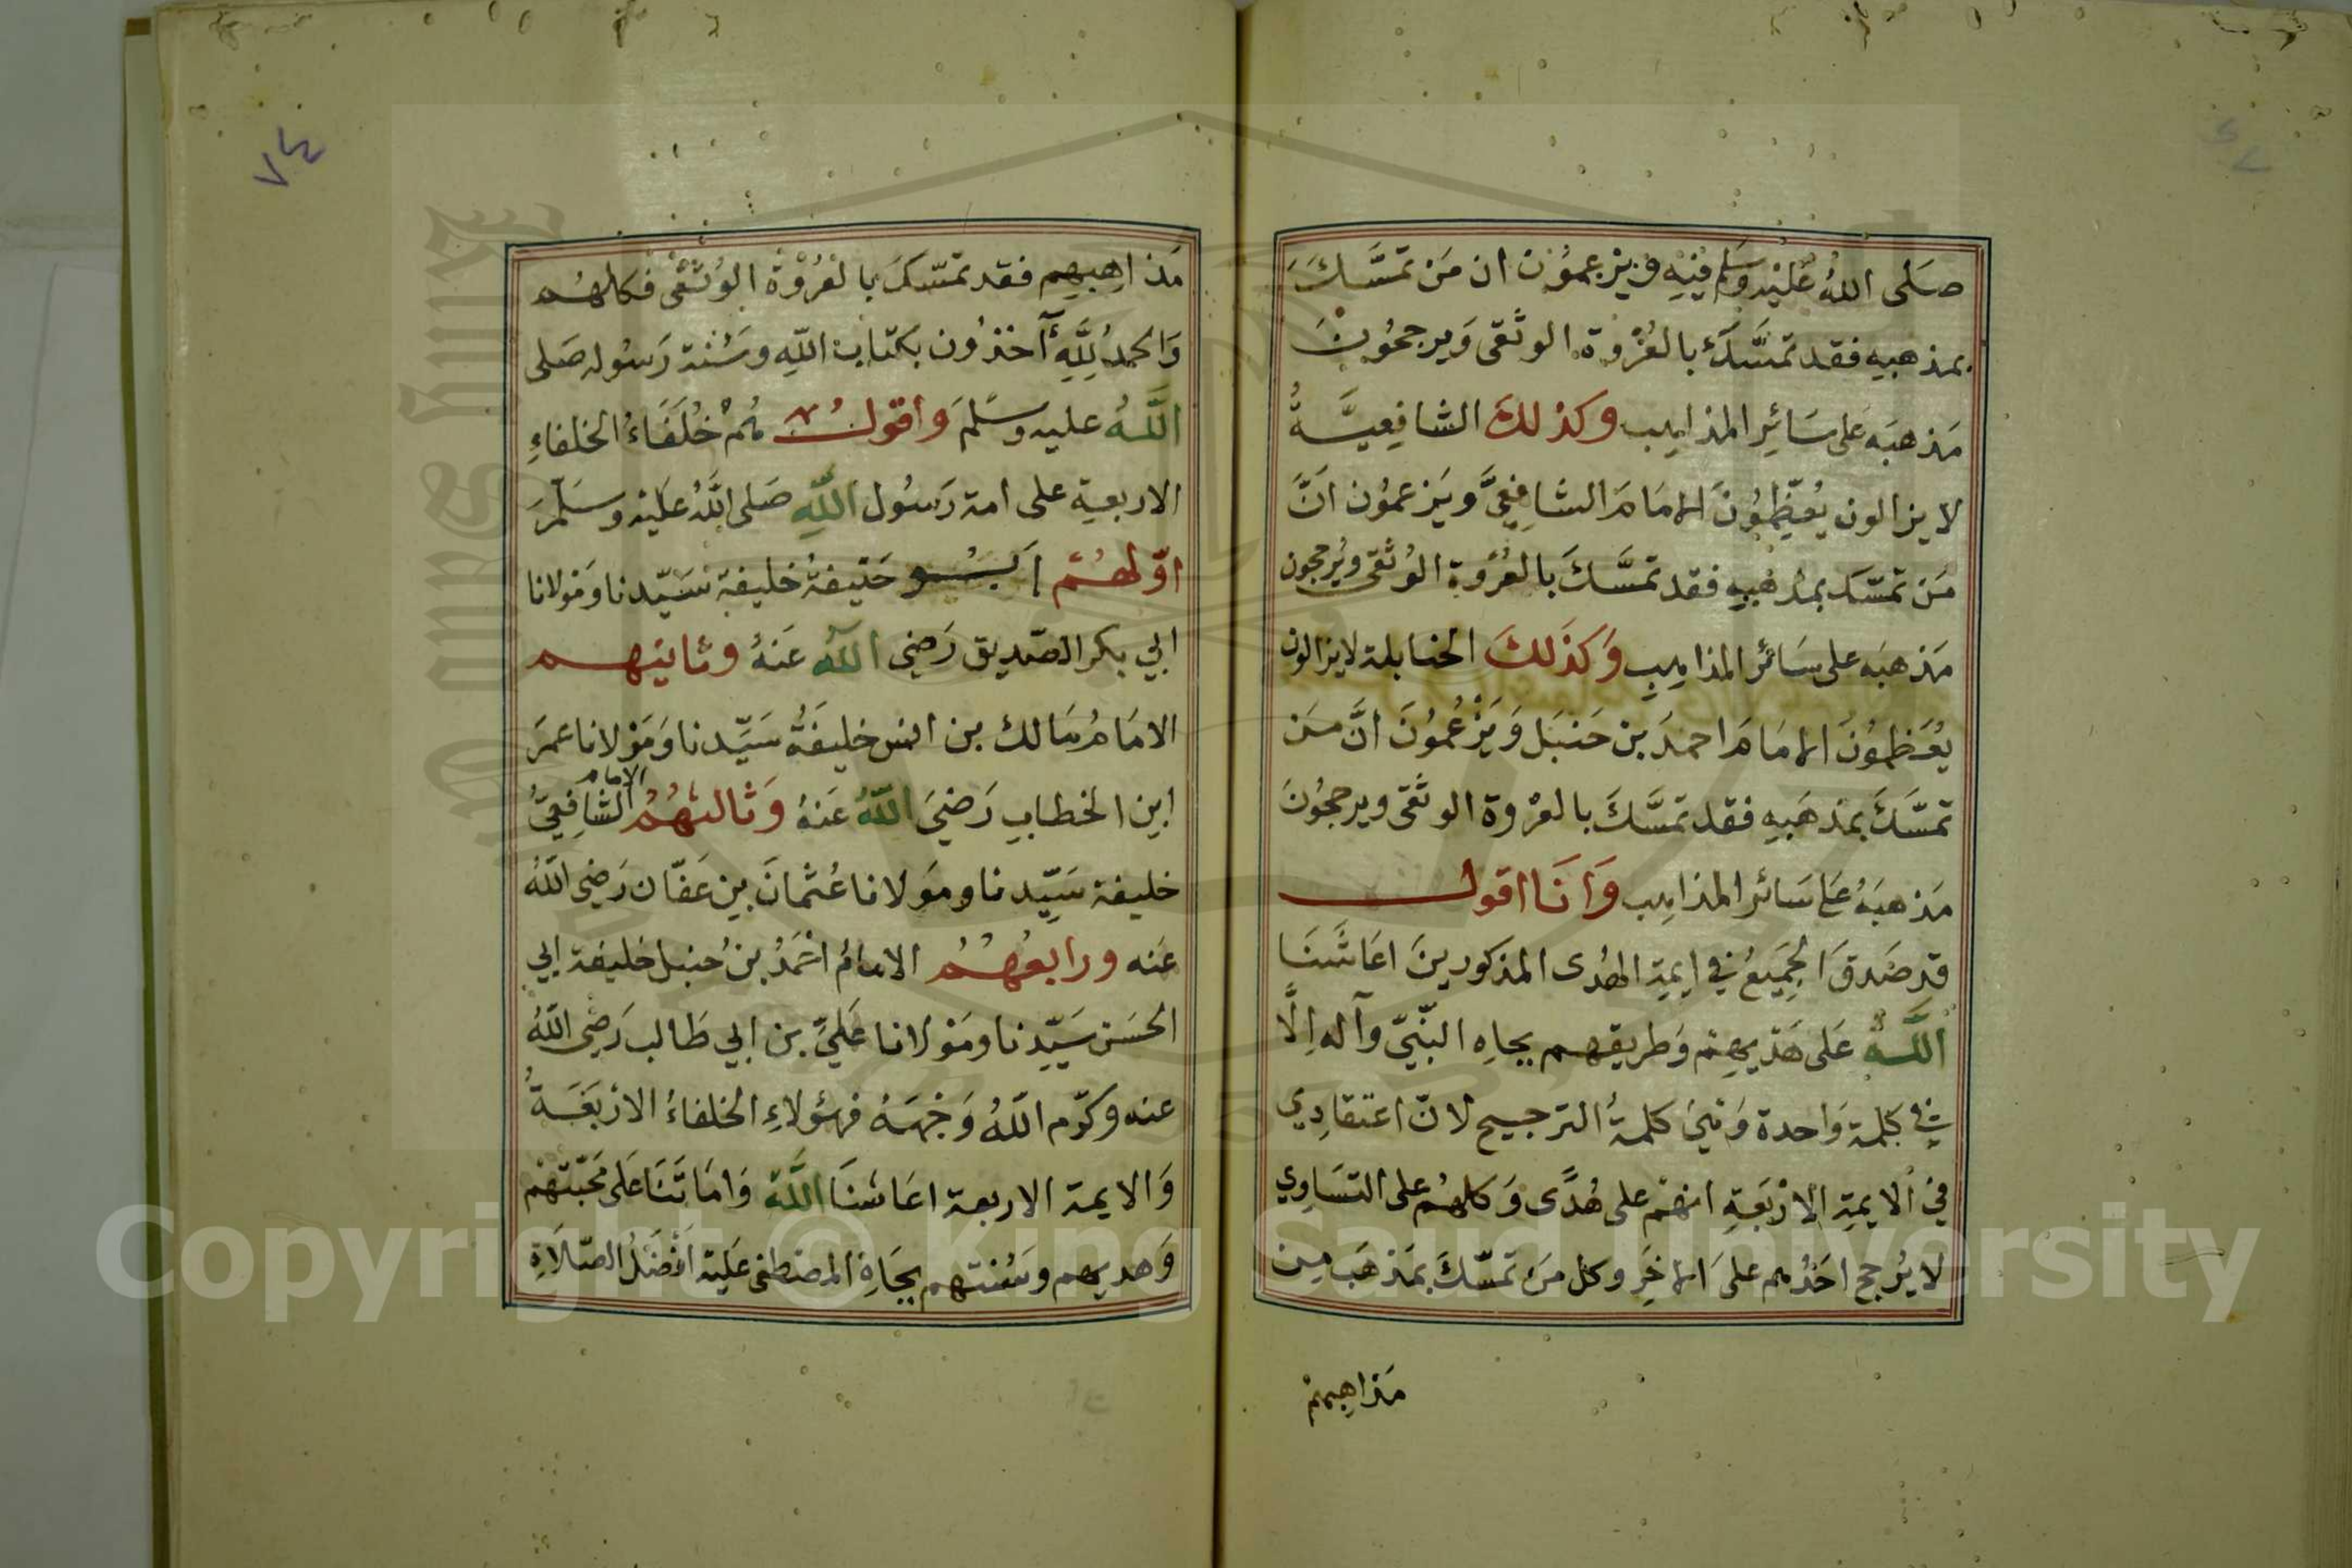 صَلَى اللهُ عَلَيْهِ وَسَلم فيْهِ وَيَزعمُون ان مَن تمَسَّكَ
بمذهبِهِ فقد تمَسَّكَ بالعُرْوة الوثَقى وَيرجحُونَ
مَذهبَه عَلى سَائِرِ المذاهِب وكذلكَ الشافِعيَّةُ
لا يزالون يُعَظِّمُونَ الامَامَ الشافِعِيَّ ويَزعمُون انَّ
مَن تمَسّك بمذهَبِهِ فقد تمسَّكَ بالعُرْوة الوُثَقى ويُرجحون
مَذهبَه على سَائر المذاهِبِ وَكذَلكَ الحنابلة لا يزالون
يُعَظِمُونَ الامَامَ احمدَ بن حَنبَل وَيَزْعُمُونَ انَّ مَن
تمَسَّكَ بمَذهَبِهِ فقد تمَسَّكَ بالعرْوة الوثَقى ويرجحُونَ
مَذهبَهُ عَلى سَائر المذاهِب وَانَا اقول
قد صَدقَ الجَمِيعُ في ايمةِ الهُدى المذكورينَ اعَاشَنَا
اللَّهُ عَلى هَدْيهِمْ وَطريقهم بجاهِ النَّبّيِ وآله اِلَّا
في كلمة وَاحدة وَهْيَ كلمةُ الترجيح لانّ اعتقادِي
في الايمةِ الارْبَعَةِ انهُم على هُدًى وَكلهُم على التسَاوِي
لا يُرجح احَدُهم علىَ الاخَرِ وكل مَن تمَسّكَ بمَذهَب مِن
مَذاهِبهمْ
٧٤
مَذاهِبِهِم فقد تمَسّكَ بالعُرْوَة الوُثقَى فكلهُم
وَالحمدُ لِلَّهِ آخذُون بكتاب اللهِ وسُنة رَسُوله صَلى
اللَّهُ عليه وسَلَّمَ واقول هُمْ خُلَفَاءُ الخلفاءِ
الاربعة على امة رَسُول اللَّهِ صَلى اللهُ عَليْه وسَلَّمَ
اوّلهُم ابُو حَنيفةُ خليفة سَيّدنا وَمَولانا
ابي بكر الصّديق رَضي اللهُ عَنهُ وثانيهم
الامَامُ مَالك بن انس خليفَةُ سَيِّدنا وَمَوْلانا عمرَ
ابن الخطابِ رَضيَ اللَّهُ عَنهُ وَثالثهُمُ الامام الشافِعِيُّ
خليفة سَيِّدنا ومَولانا عُثمانَ بن عَفّان رَضي اللهُ
عَنه ورابعُهُمُ الامامُ احْمَدُ بن حُنبل خليفة ابي
الحسَن سَيِّدنا ومَوْلانا عَليِّ بن ابي طَالب رَضِى اللهُ
عنه وكرّم اللهُ وَجْهَهُ فهؤلاءِ الخلفاءُ الارْبَعَةُ
وَالايمة الاربعة اعَاشنَا اللَّهُ وَامَاتَنَا عَلى مَحَبّتهْم
وَهديهم وسُنتهم بجَاهِ المصْطفى عَليْهِ اَفْضَلُ الصّلَاةِ
Copyright © King Saud University